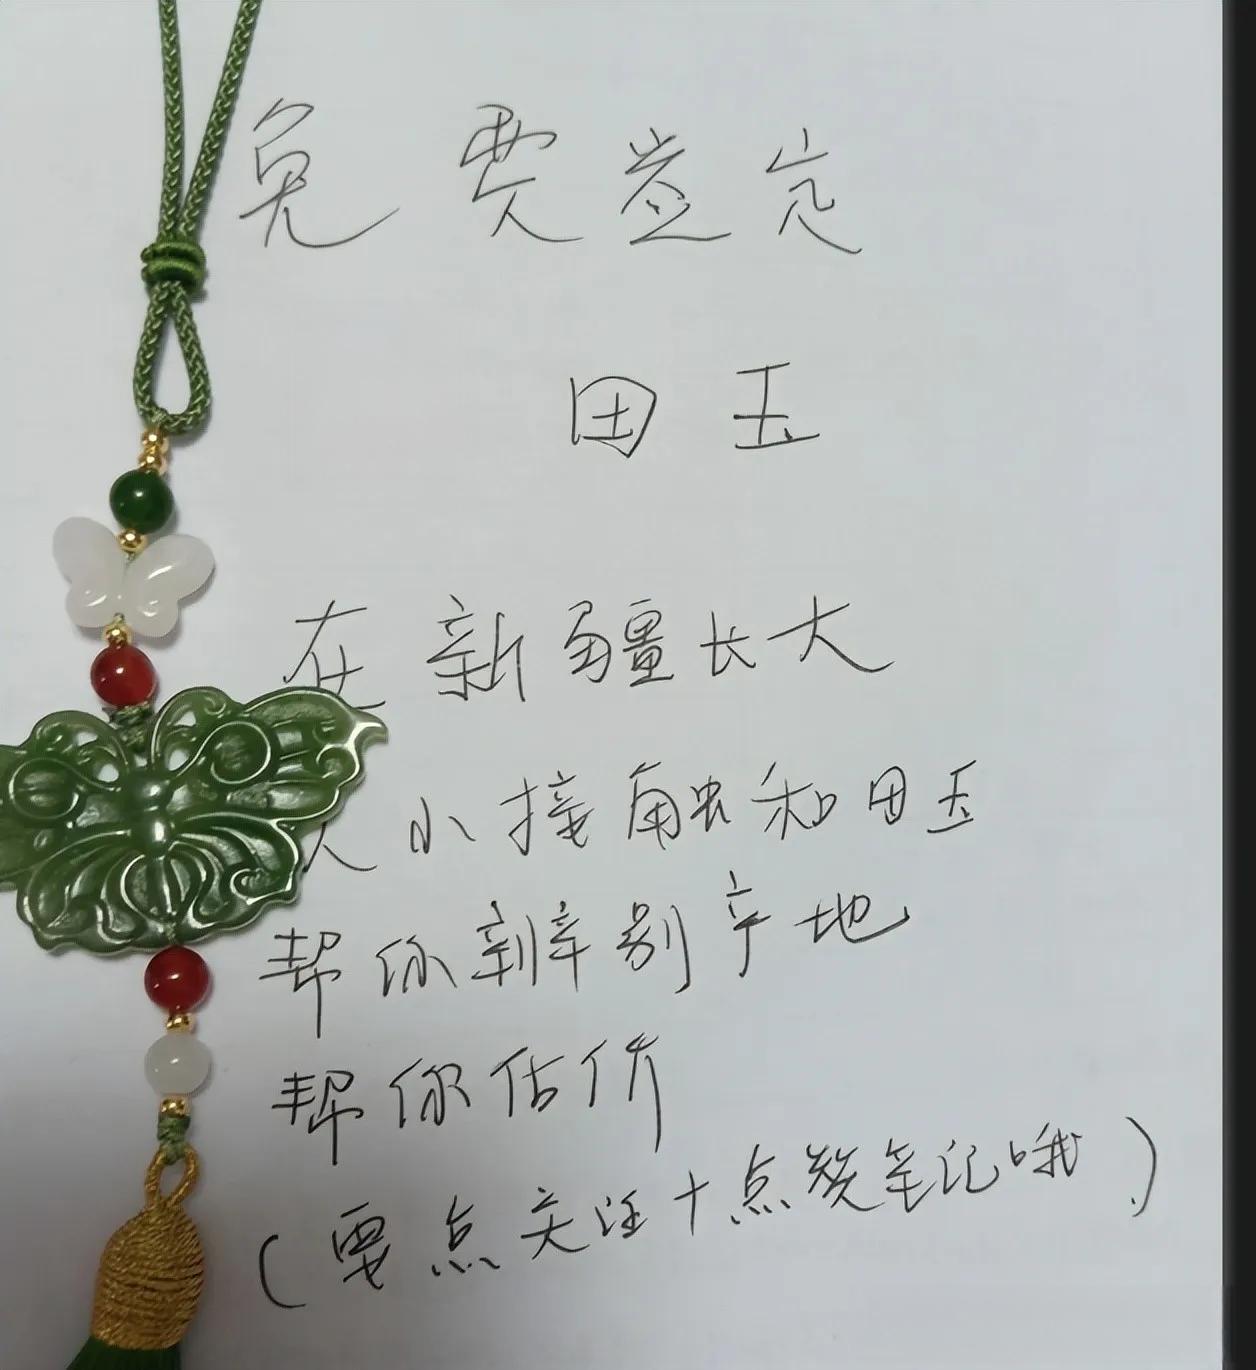 免费鉴定
田玉
在新疆长大
从小接触和田玉
帮你辨别产地
帮你估价
(要点关注+点赞笔记哦)